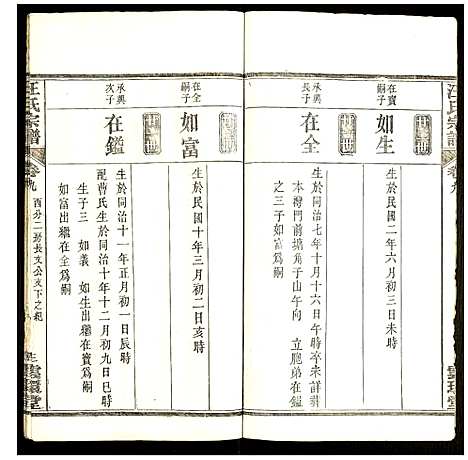 汪氏宗譜
卷九
在寶
嗣子
如生
生於民國二年六月初三日未時
承興
長子
在全
生於同治七年十月十六日午時卒未詳葬
本灣門前塘角子山午向 立胞弟在鑑
之三子如富為嗣
在全
嗣子
如富
生於民國十年三月初二日亥時
承興
次子
在鑑
生於同治十一年正月初一日辰時
配曹氏生於同治十二月初九日巳時
生子三 如義 如生出繼在寶為嗣
如富出繼在全為嗣
汪氏宗譜
卷九
酉分二房長文公支下之紀